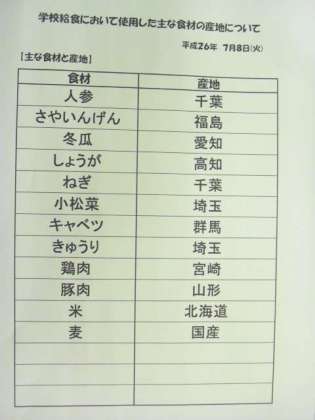 学校給食において使用した主な食材の産地について
平成26年 7月8日(火)
【主な食材と産地】
食材 産地
人参 千葉
さやいんげん 福島
冬瓜 愛知
しょうが 高知
ねぎ 千葉
小松菜 埼玉
キャベツ 群馬
きゅうり 埼玉
鶏肉 宮崎
豚肉 山形
米 北海道
麦 国産